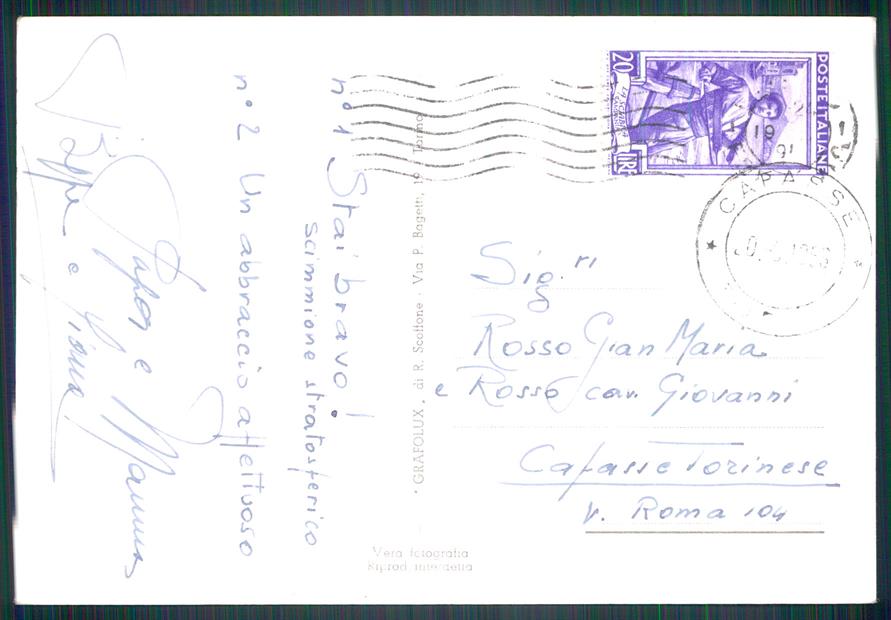 n° 1 Stai bravo!
scimmione stratosferico
n° 2 Un abbraccio affettuoso
Papà e Mamma
Beppe e
• GRAFOLUX • di R. Scottone - Via P. Bagetti, 19 - Torino
Vera fotografia
Riprod. interdetta
POSTE ITALIANE
20
LIRE
CAFASSE
Sig.ri
Rosso Gian Maria
e Rosso cav. Giovanni
Cafasse Torinese
v. Roma 104